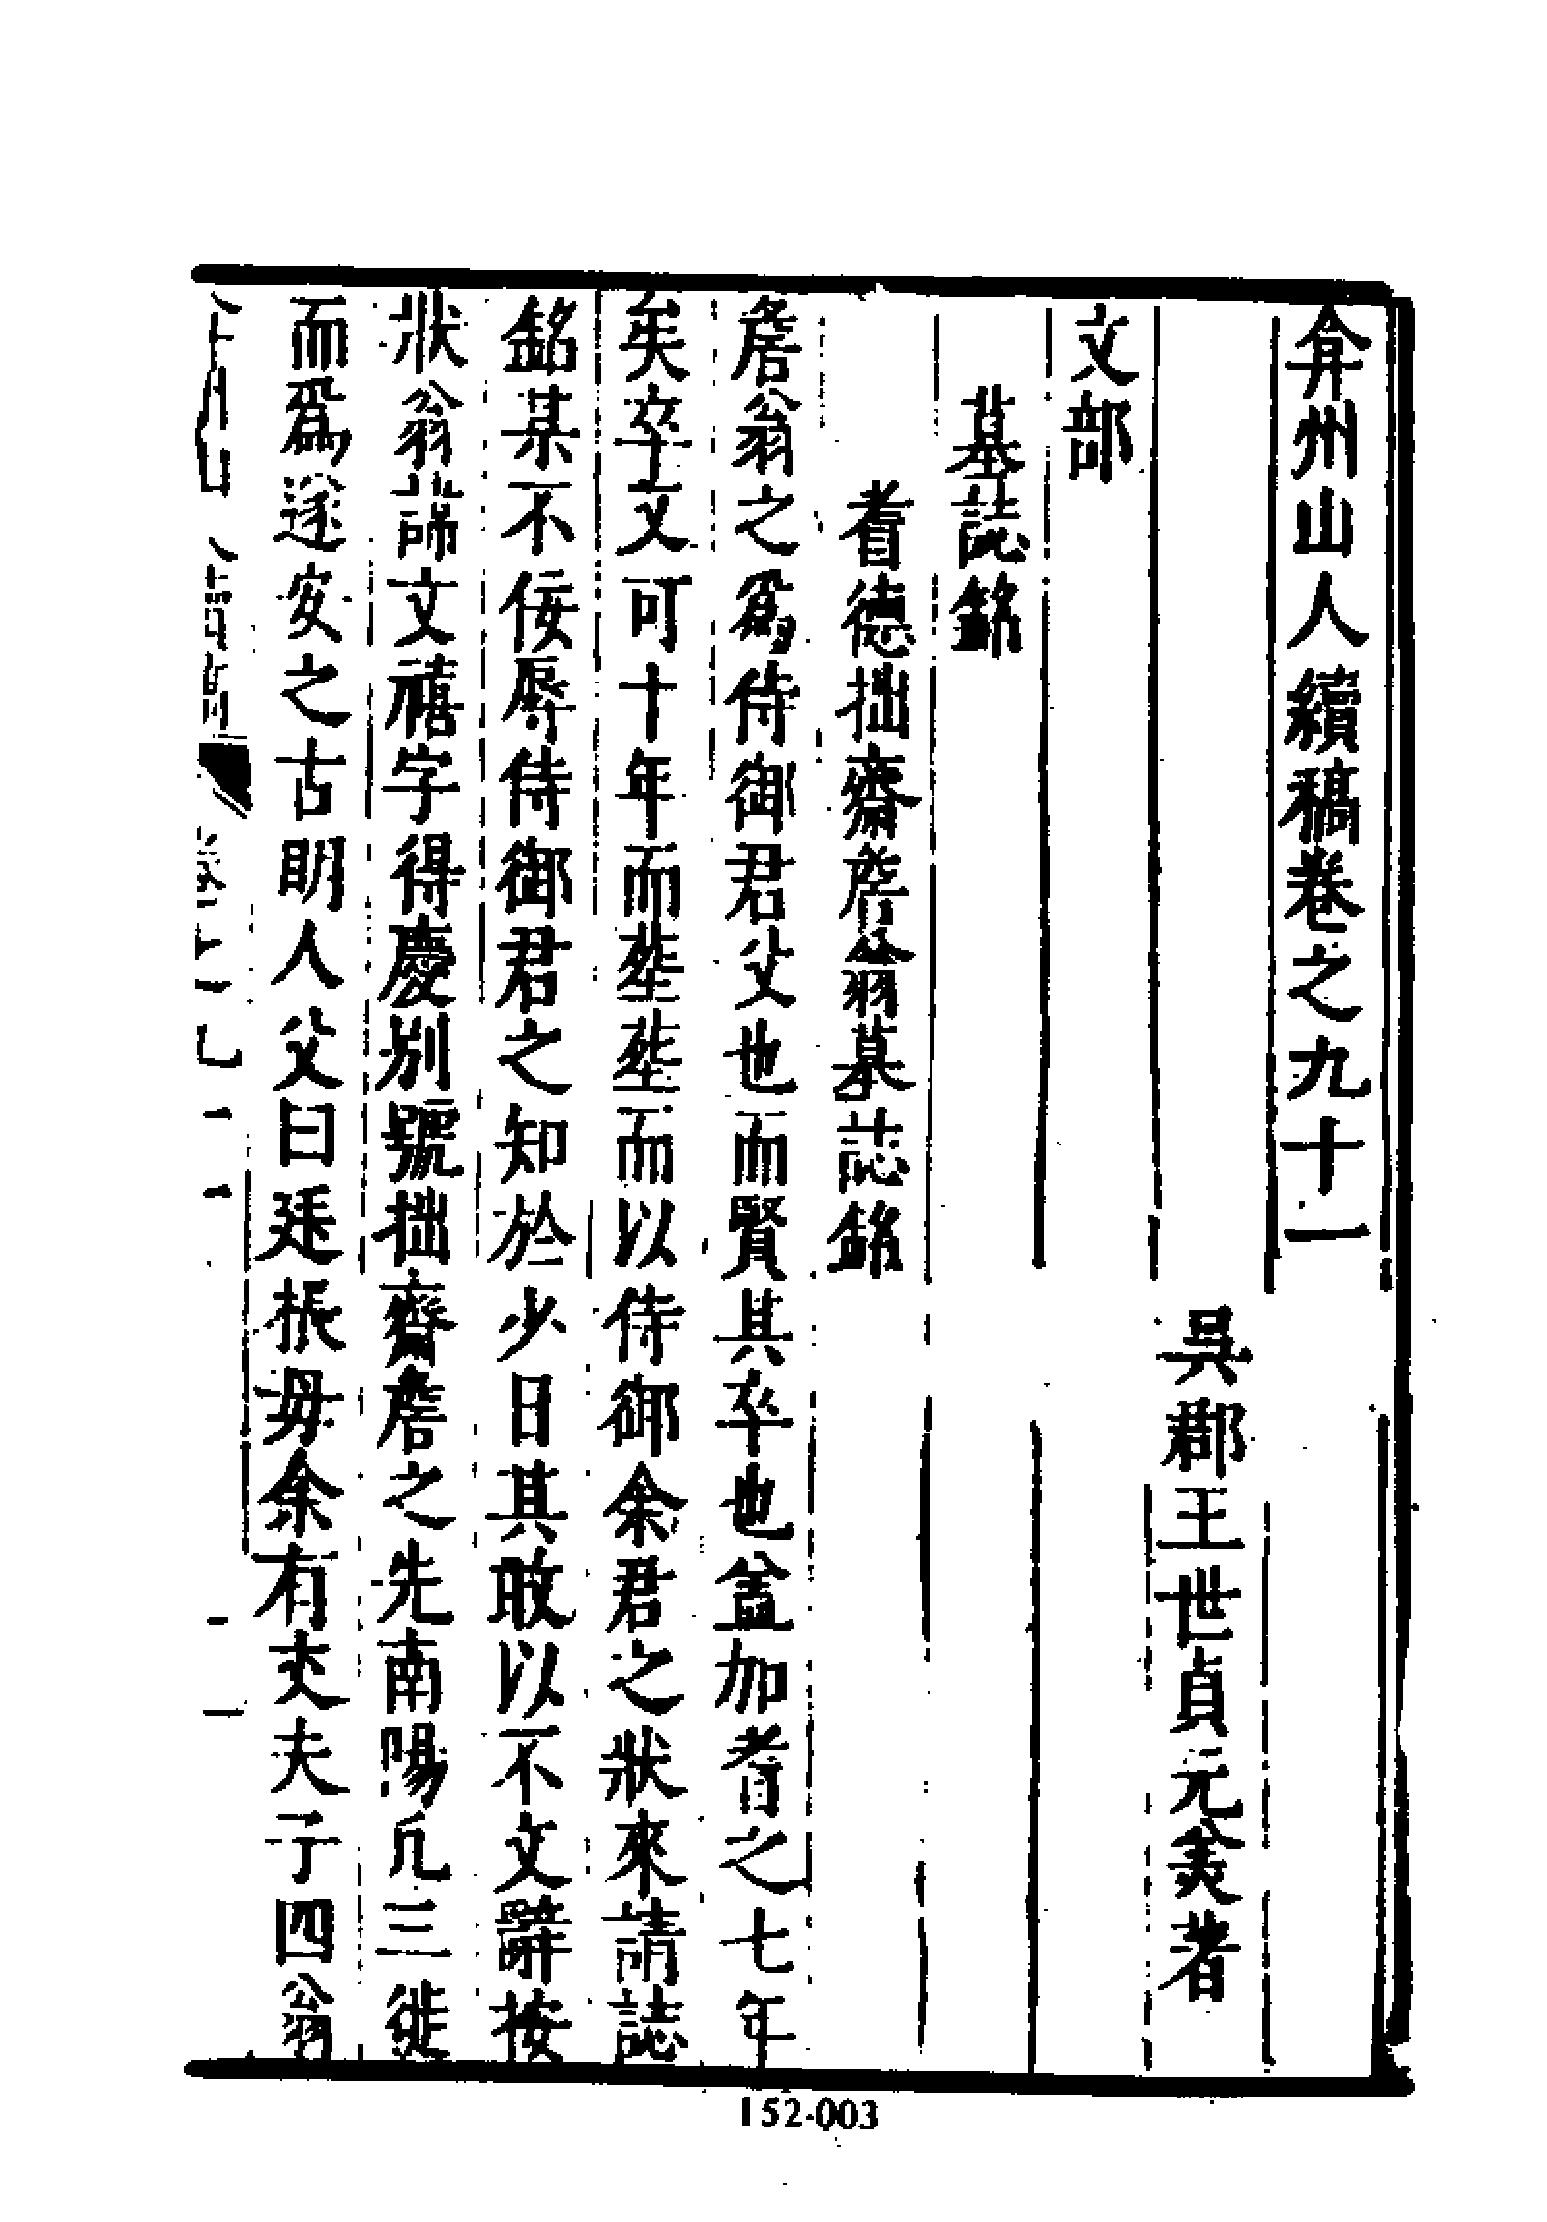 弇州山人續稿卷之九十一
吳郡王世貞元美著
文部
墓誌銘
耆德拙齋詹翁墓誌銘
詹翁之爲侍御君父也而賢其卒也盖加耆之七年
矣卒又可十年而塟塟而以侍御余君之狀來請誌
銘某不佞辱侍御君之知於少日其敢以不文辭按
狀翁諱文禧字得慶别號拙齋詹之先南陽凡三徙
而爲遂安之古明人父曰廷振毋余有丈夫子四翁
152-003